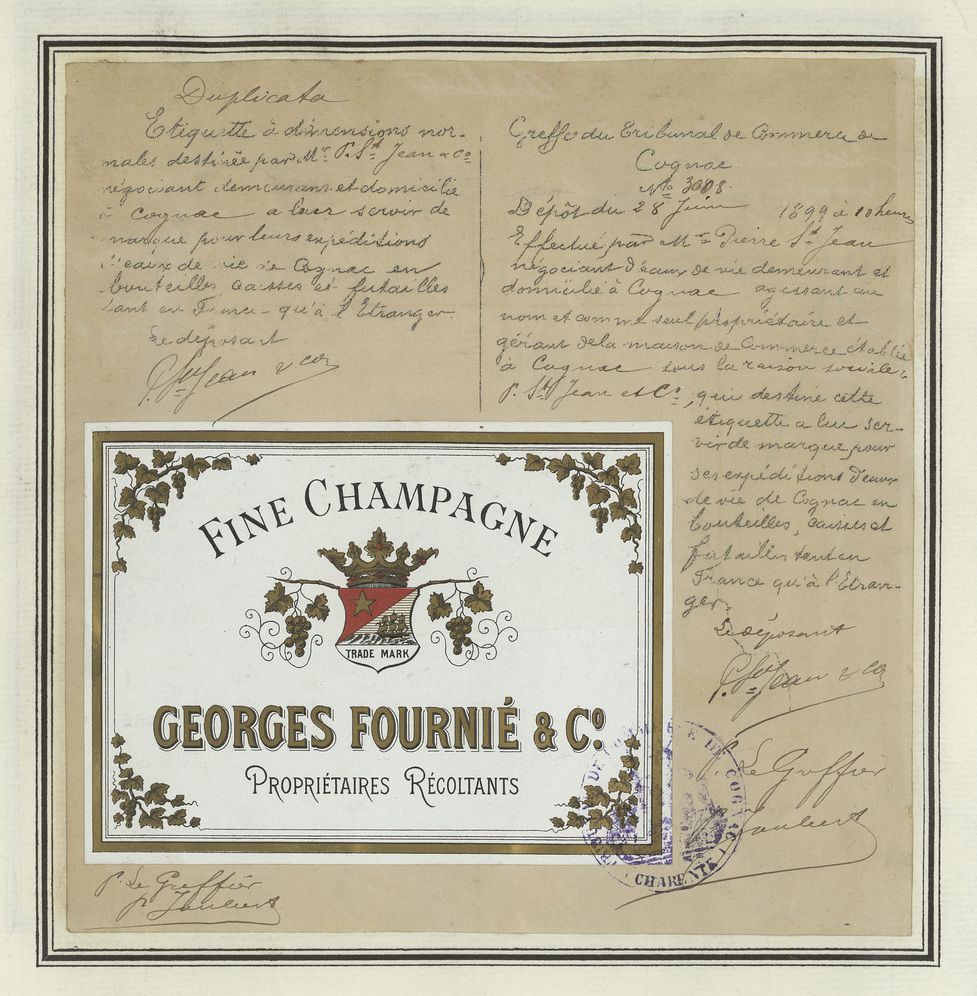 Duplicata
Etiquette à dimensions nor-
males destinée par Mr. P. St. Jean & Co
négociant demeurant et domicilié
à Cognac a leur servir de
marque pour leurs expéditions
d'eaux de vie de Cognac en
bouteilles caisses et futailles
tant en France qu'à l'Etranger.
Le déposant
P. St Jean & Co
Greffe du Tribunal de Commerce de
Cognac.
No
Dépôt du 28 Juin 1899 à 10 heures
Effectué par Mr. Pierre St. Jean
négociant d'eaux de vie demeurant et
domicilié à Cognac agissant au
nom et comme seul propriétaire et
gérant de la maison de Commerce établie
à Cognac sous la raison sociale:
P. St. Jean et Co, qui destine cette
étiquette a lui ser-
vir de marque pour
ses expéditions d'eaux
de vie de Cognac en
bouteilles, caisses et
futailles tant en
France qu'à l'Etran-
ger
Le déposant
P. St Jean & Co
P. Le Greffier
Joubert
FINE CHAMPAGNE
TRADE MARK
GEORGES FOURNIÉ & Co.
PROPRIÉTAIRES RÉCOLTANTS
DE COGNAC
CHARENTE
P. Le Greffier
P. Joubert